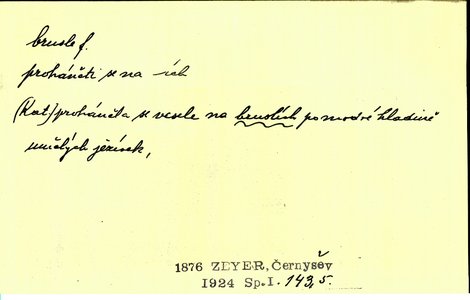 brusle f.
proháněti se na -ích
(Kat) proháněla se vesele na bruslích po modré hladině
umělých jezírek,
1876 ZEYER, Černyšev
1924 Sp.I. 143,5.